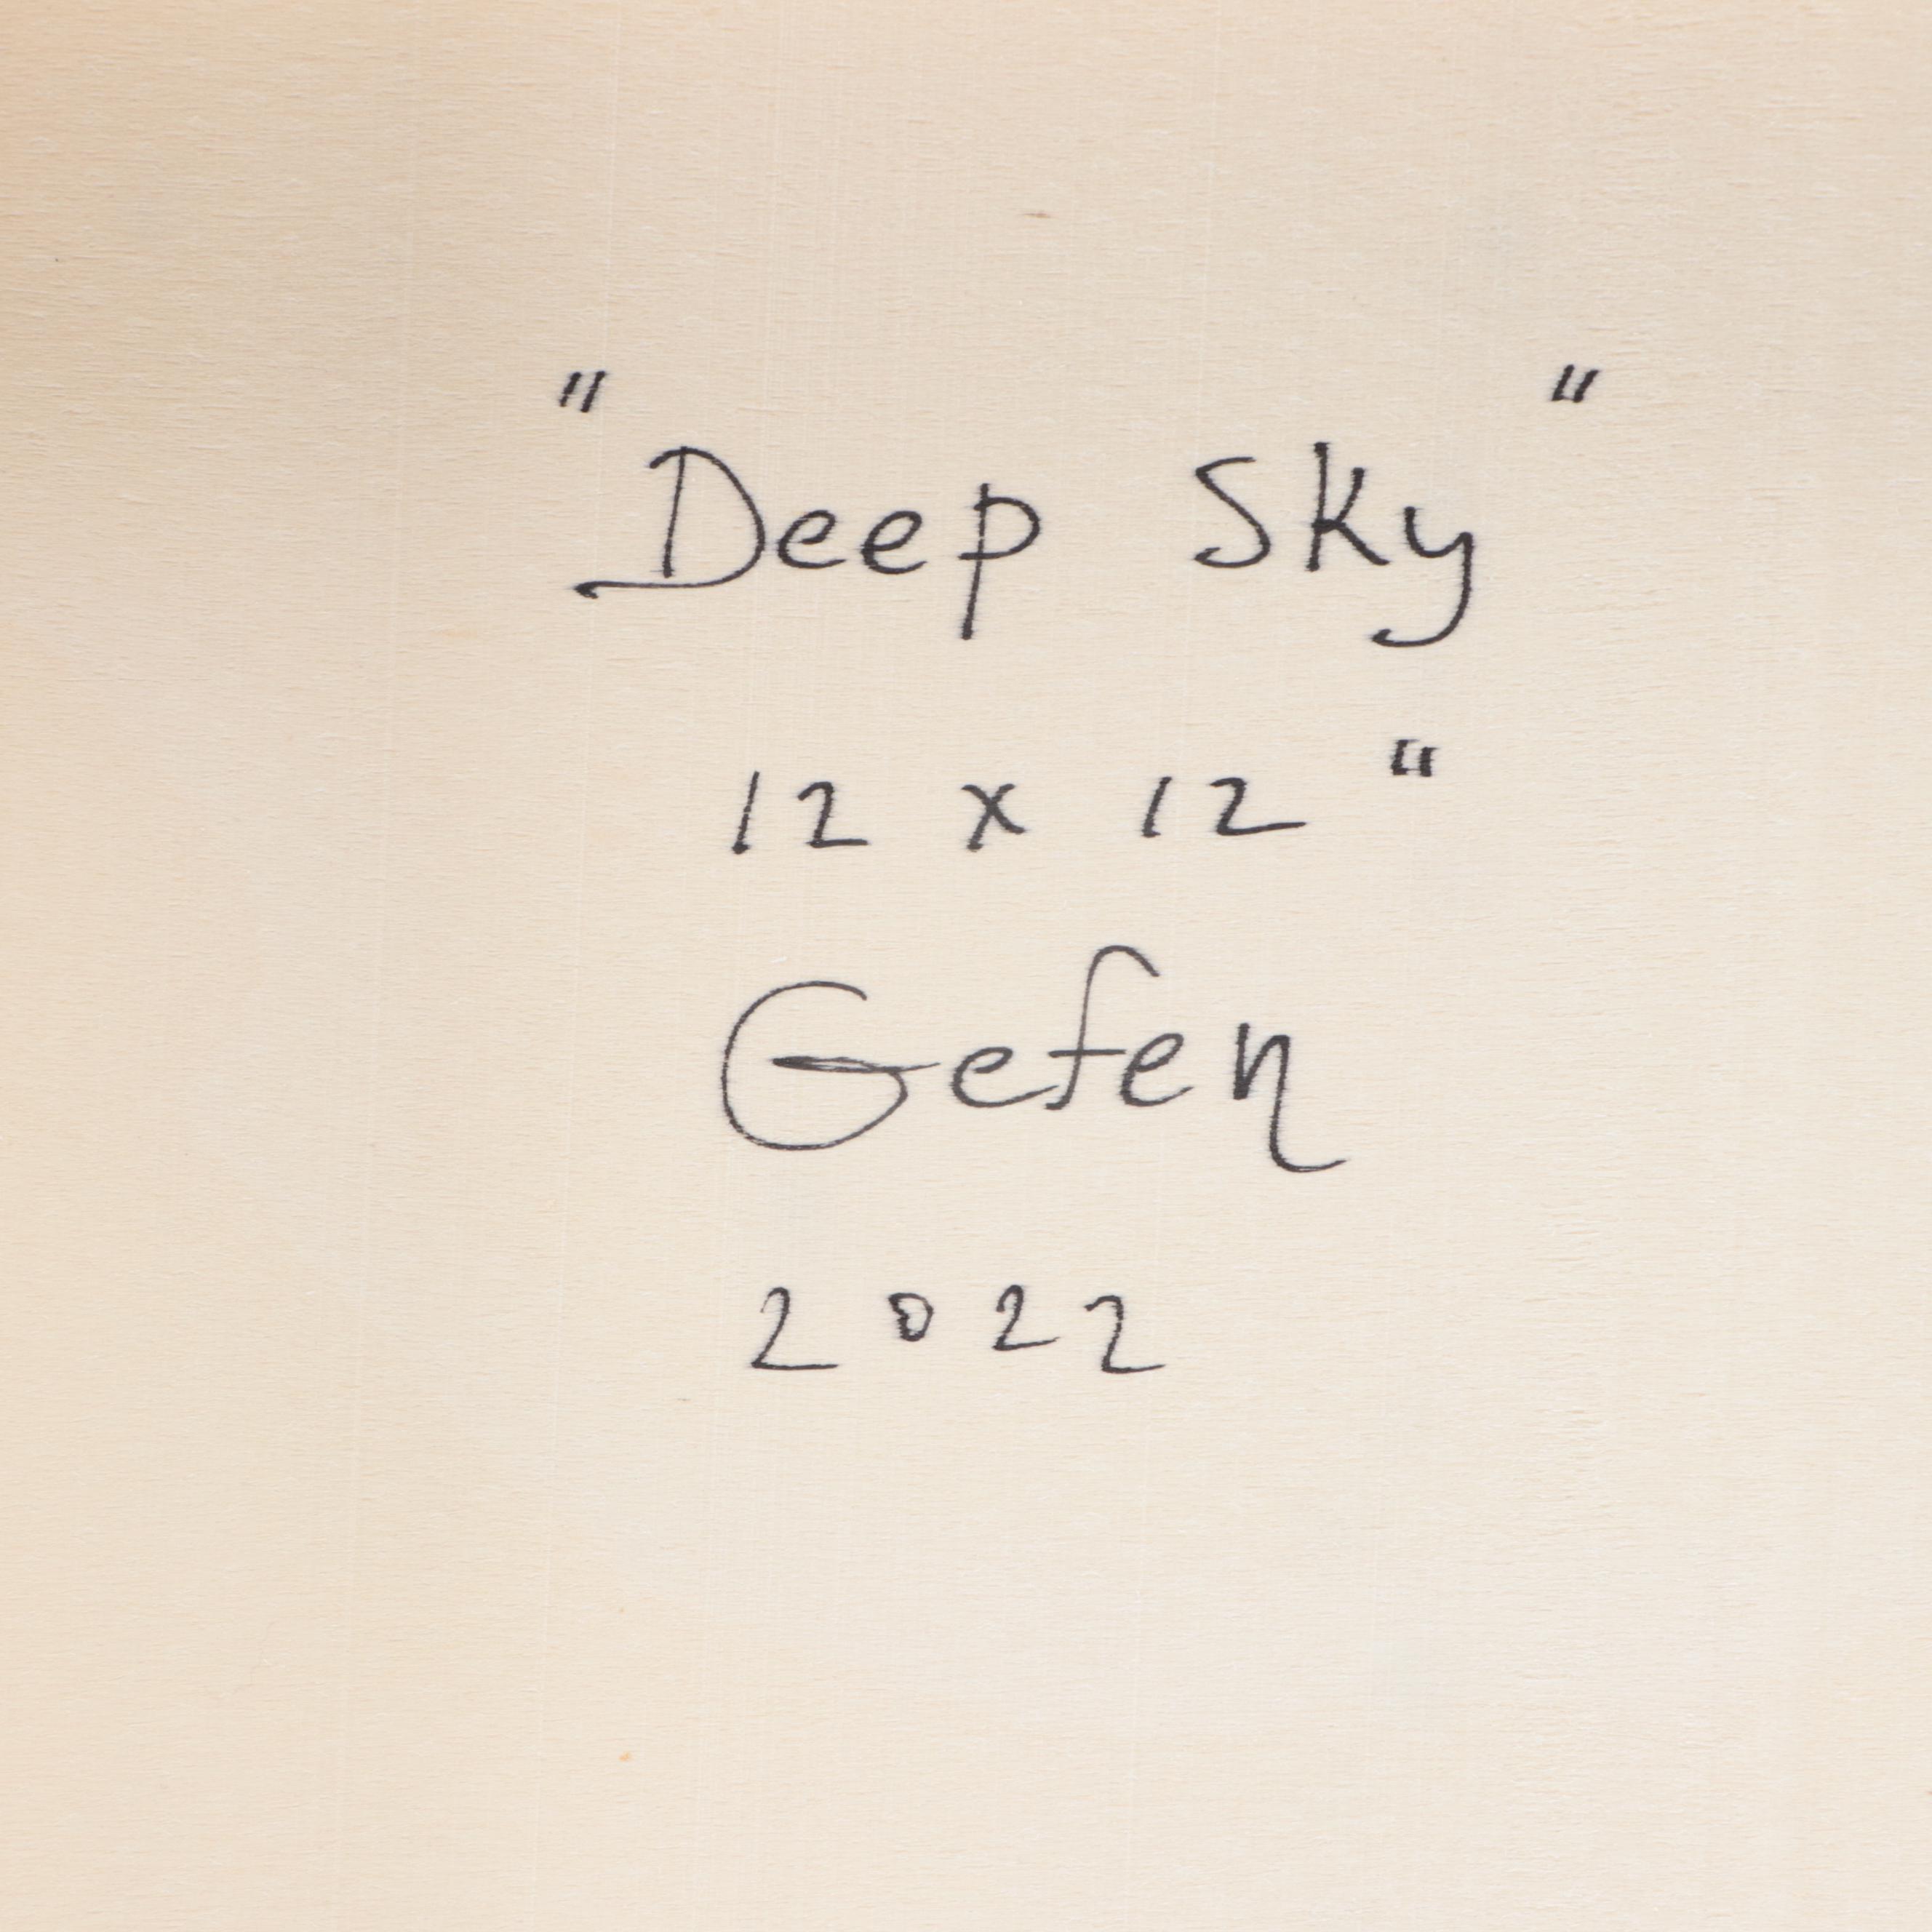 "Deep Sky"
12 x 12"
Gefen
2022